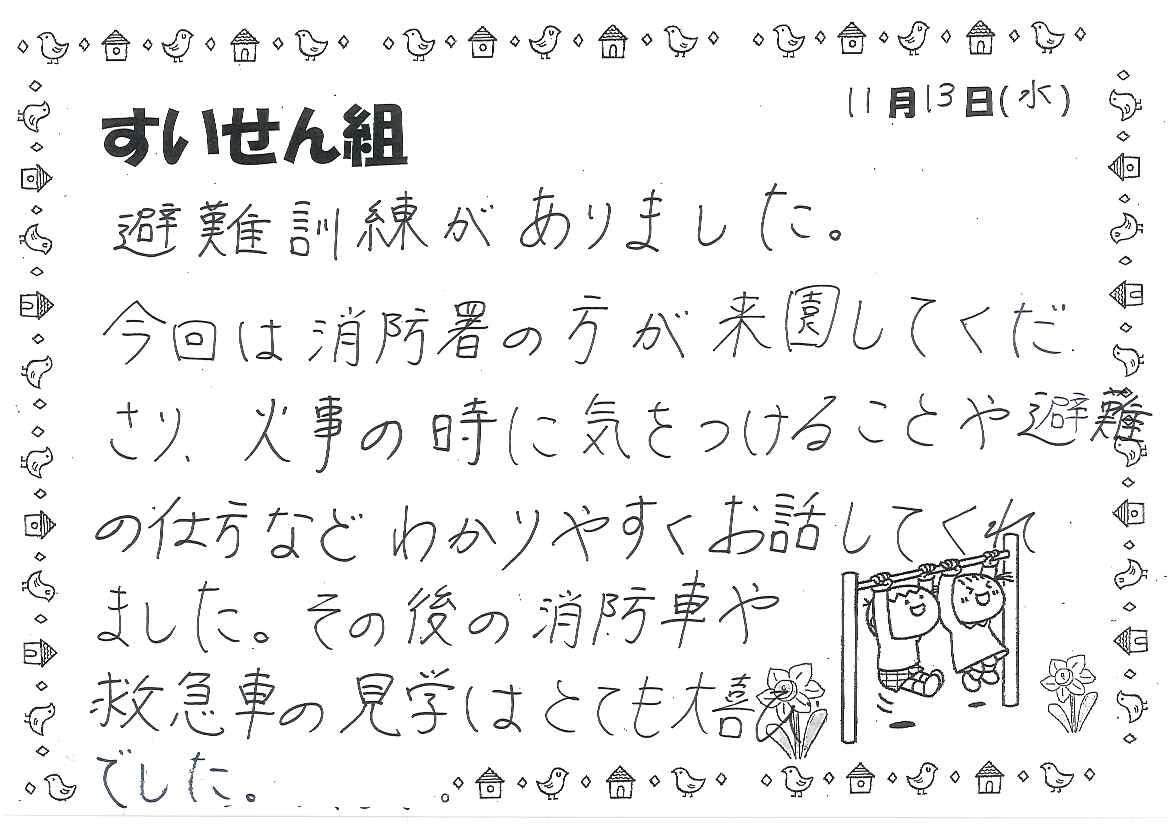 11月13日(水)
すいせん組
避難訓練がありました。
今回は消防署の方が来園してくだ
さり、火事の時に気をつけることや避難
の仕方などわかりやすくお話してくれ
ました。その後の消防車や
救急車の見学はとても大喜び
でした。